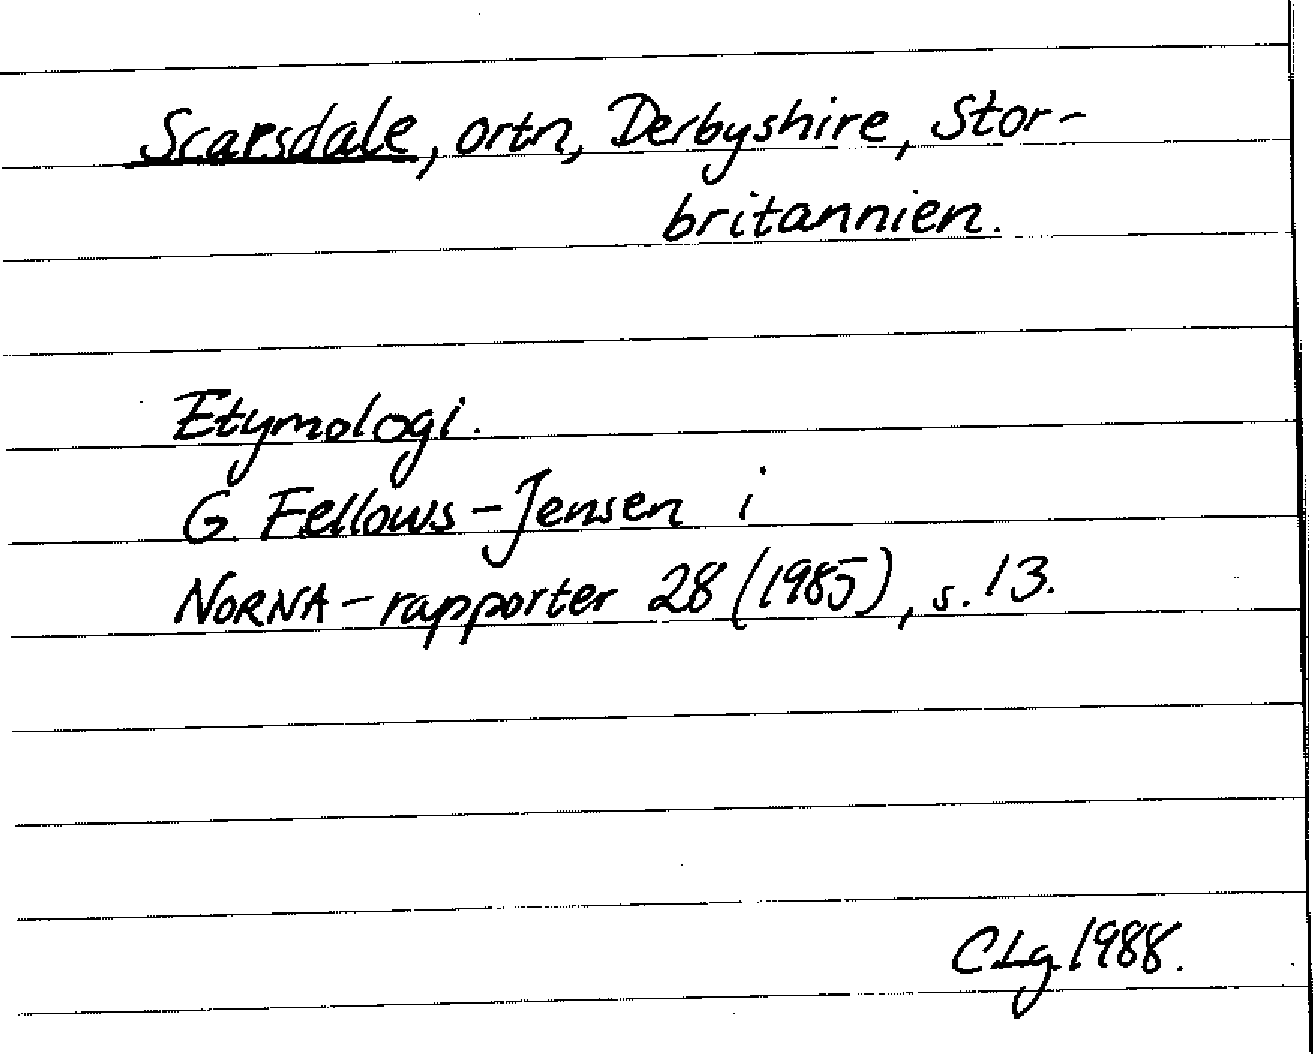 Scarsdale, ortn, Derbyshire, Stor-
britannien.
Etymologi.
G. Fellows-Jensen i
NORNA-rapporter 28 (1985), s. 13.
CLg 1988.